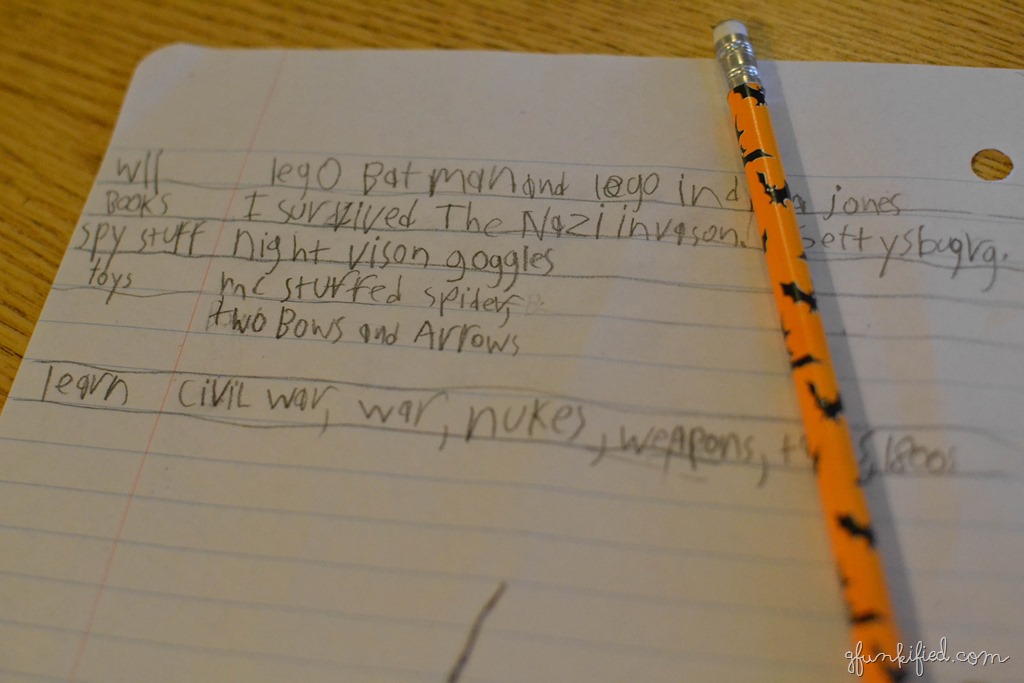 WII lego Batman and lego jones
Books I survived The Nazi invason. Gettysbugrg.
spy stuff night vison goggles
toys mc stuffed spider,
two Bows and Arrows
learn CiViL war, war, nukes, weapons, 1800s
gfunkified.com